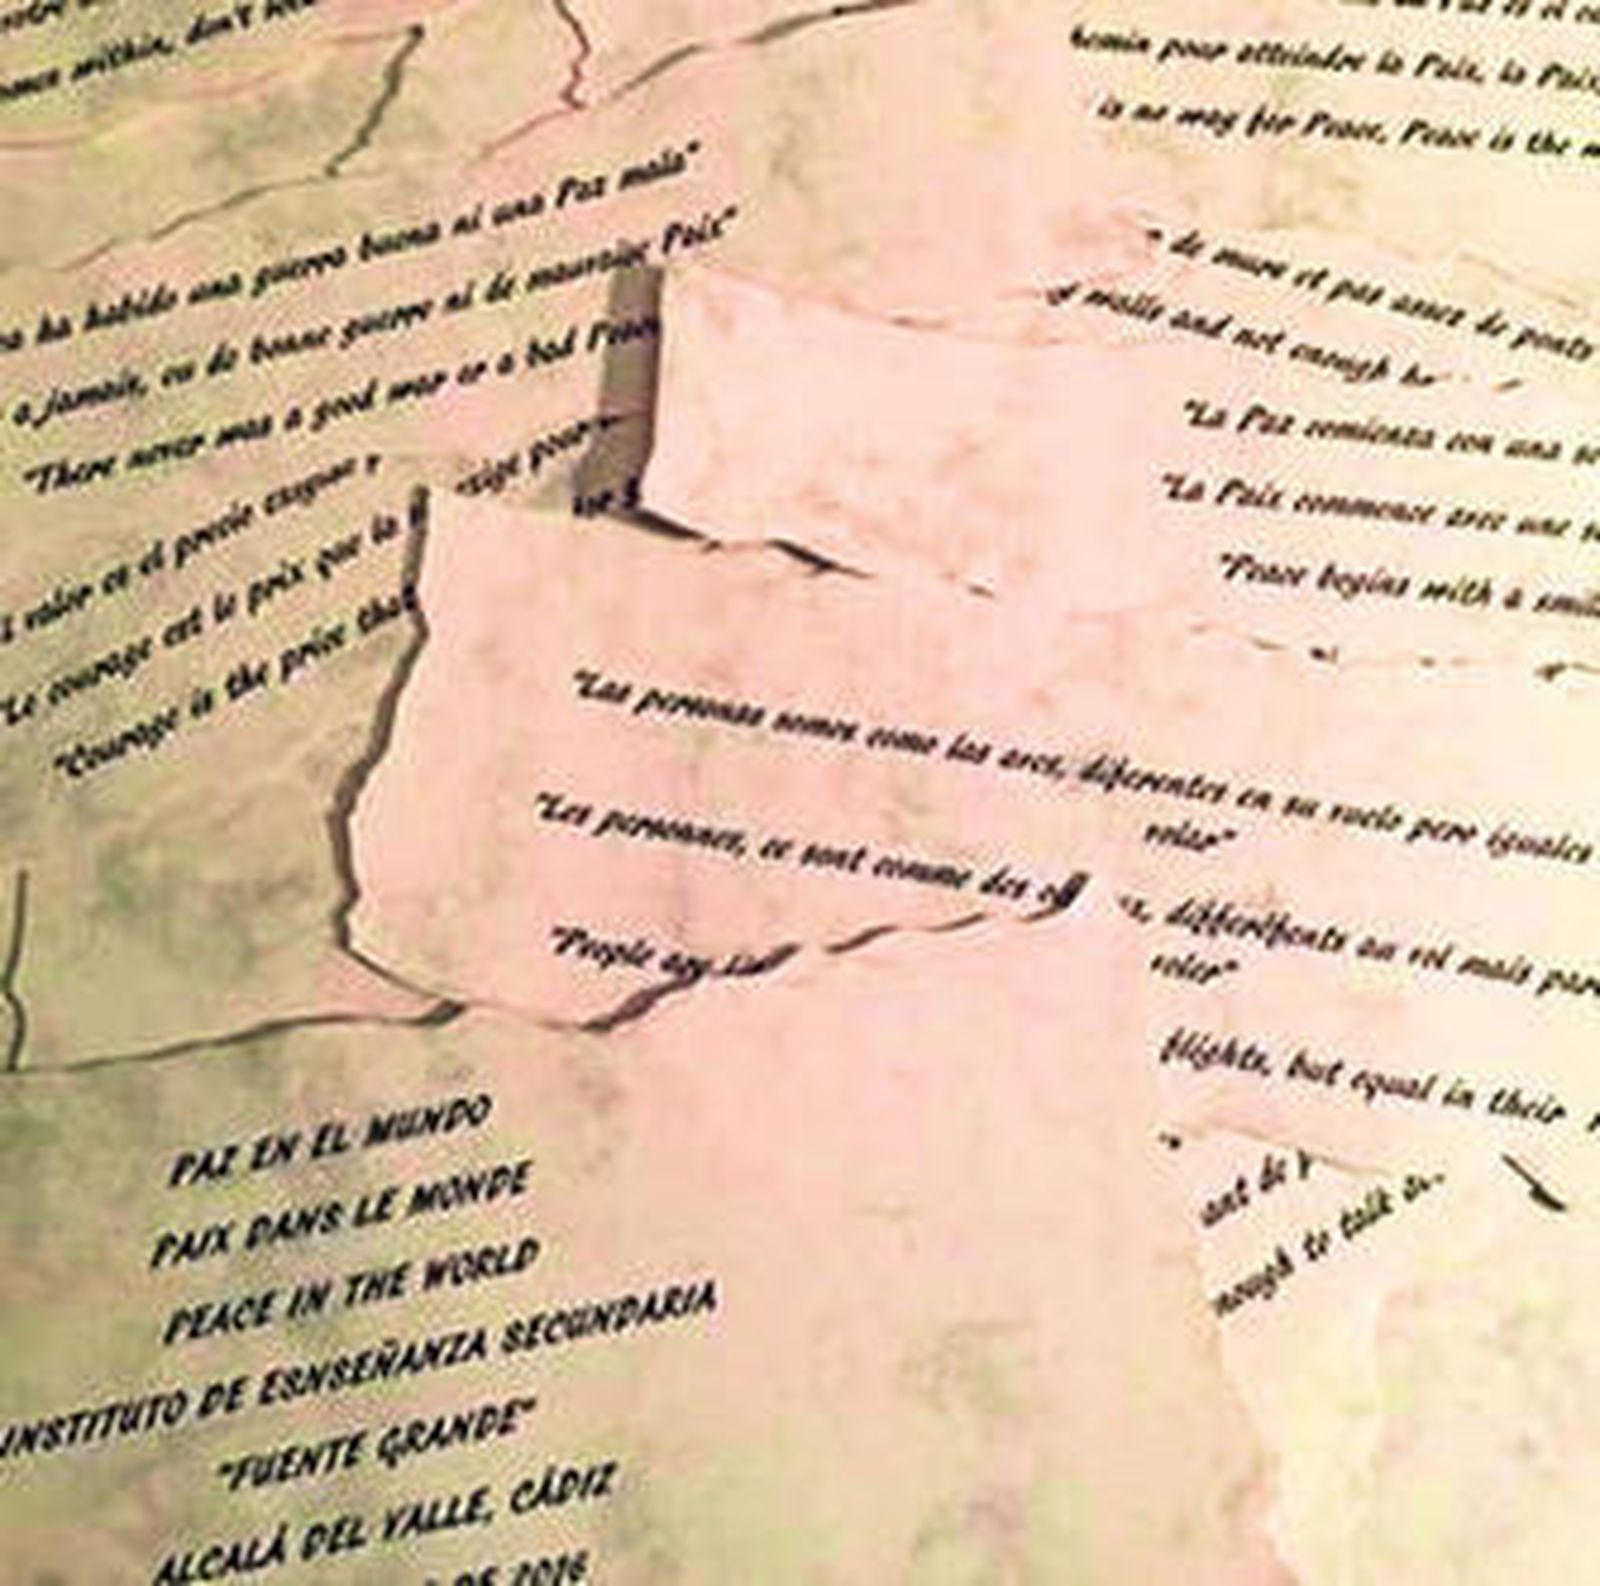 within, don't
ha habido una guerra buena ni una Paz mala"
a jamais, eu de bonne guerre ni de mauvaise Paix"
"There never was a good war or a bad Peace
valor es el precio
"Le courage est le prix que la
"Courage is the price that
exige pour
for
pour atteindre la Paix, la Paix,
is no way for Peace, Peace is the
de murs et pas assez de ponts
walls and not enough
"La Paz comienza con una
"La Paix commence avec une
"Peace begins with a
"Las personas somos como las aves, diferentes en su vuelo pero iguales
volar"
"Les personnes, ce sont comme des
au vol mais
voler"
"People are
flights, but equal in their
ant de
nough to talk
PAZ EN EL MUNDO
PAIX DANS LE MONDE
PEACE IN THE WORLD
INSTITUTO DE ESNSEÑANZA SECUNDARIA
"FUENTE GRANDE"
ALCALÁ DEL VALLE, CÁDIZ
DE 2016